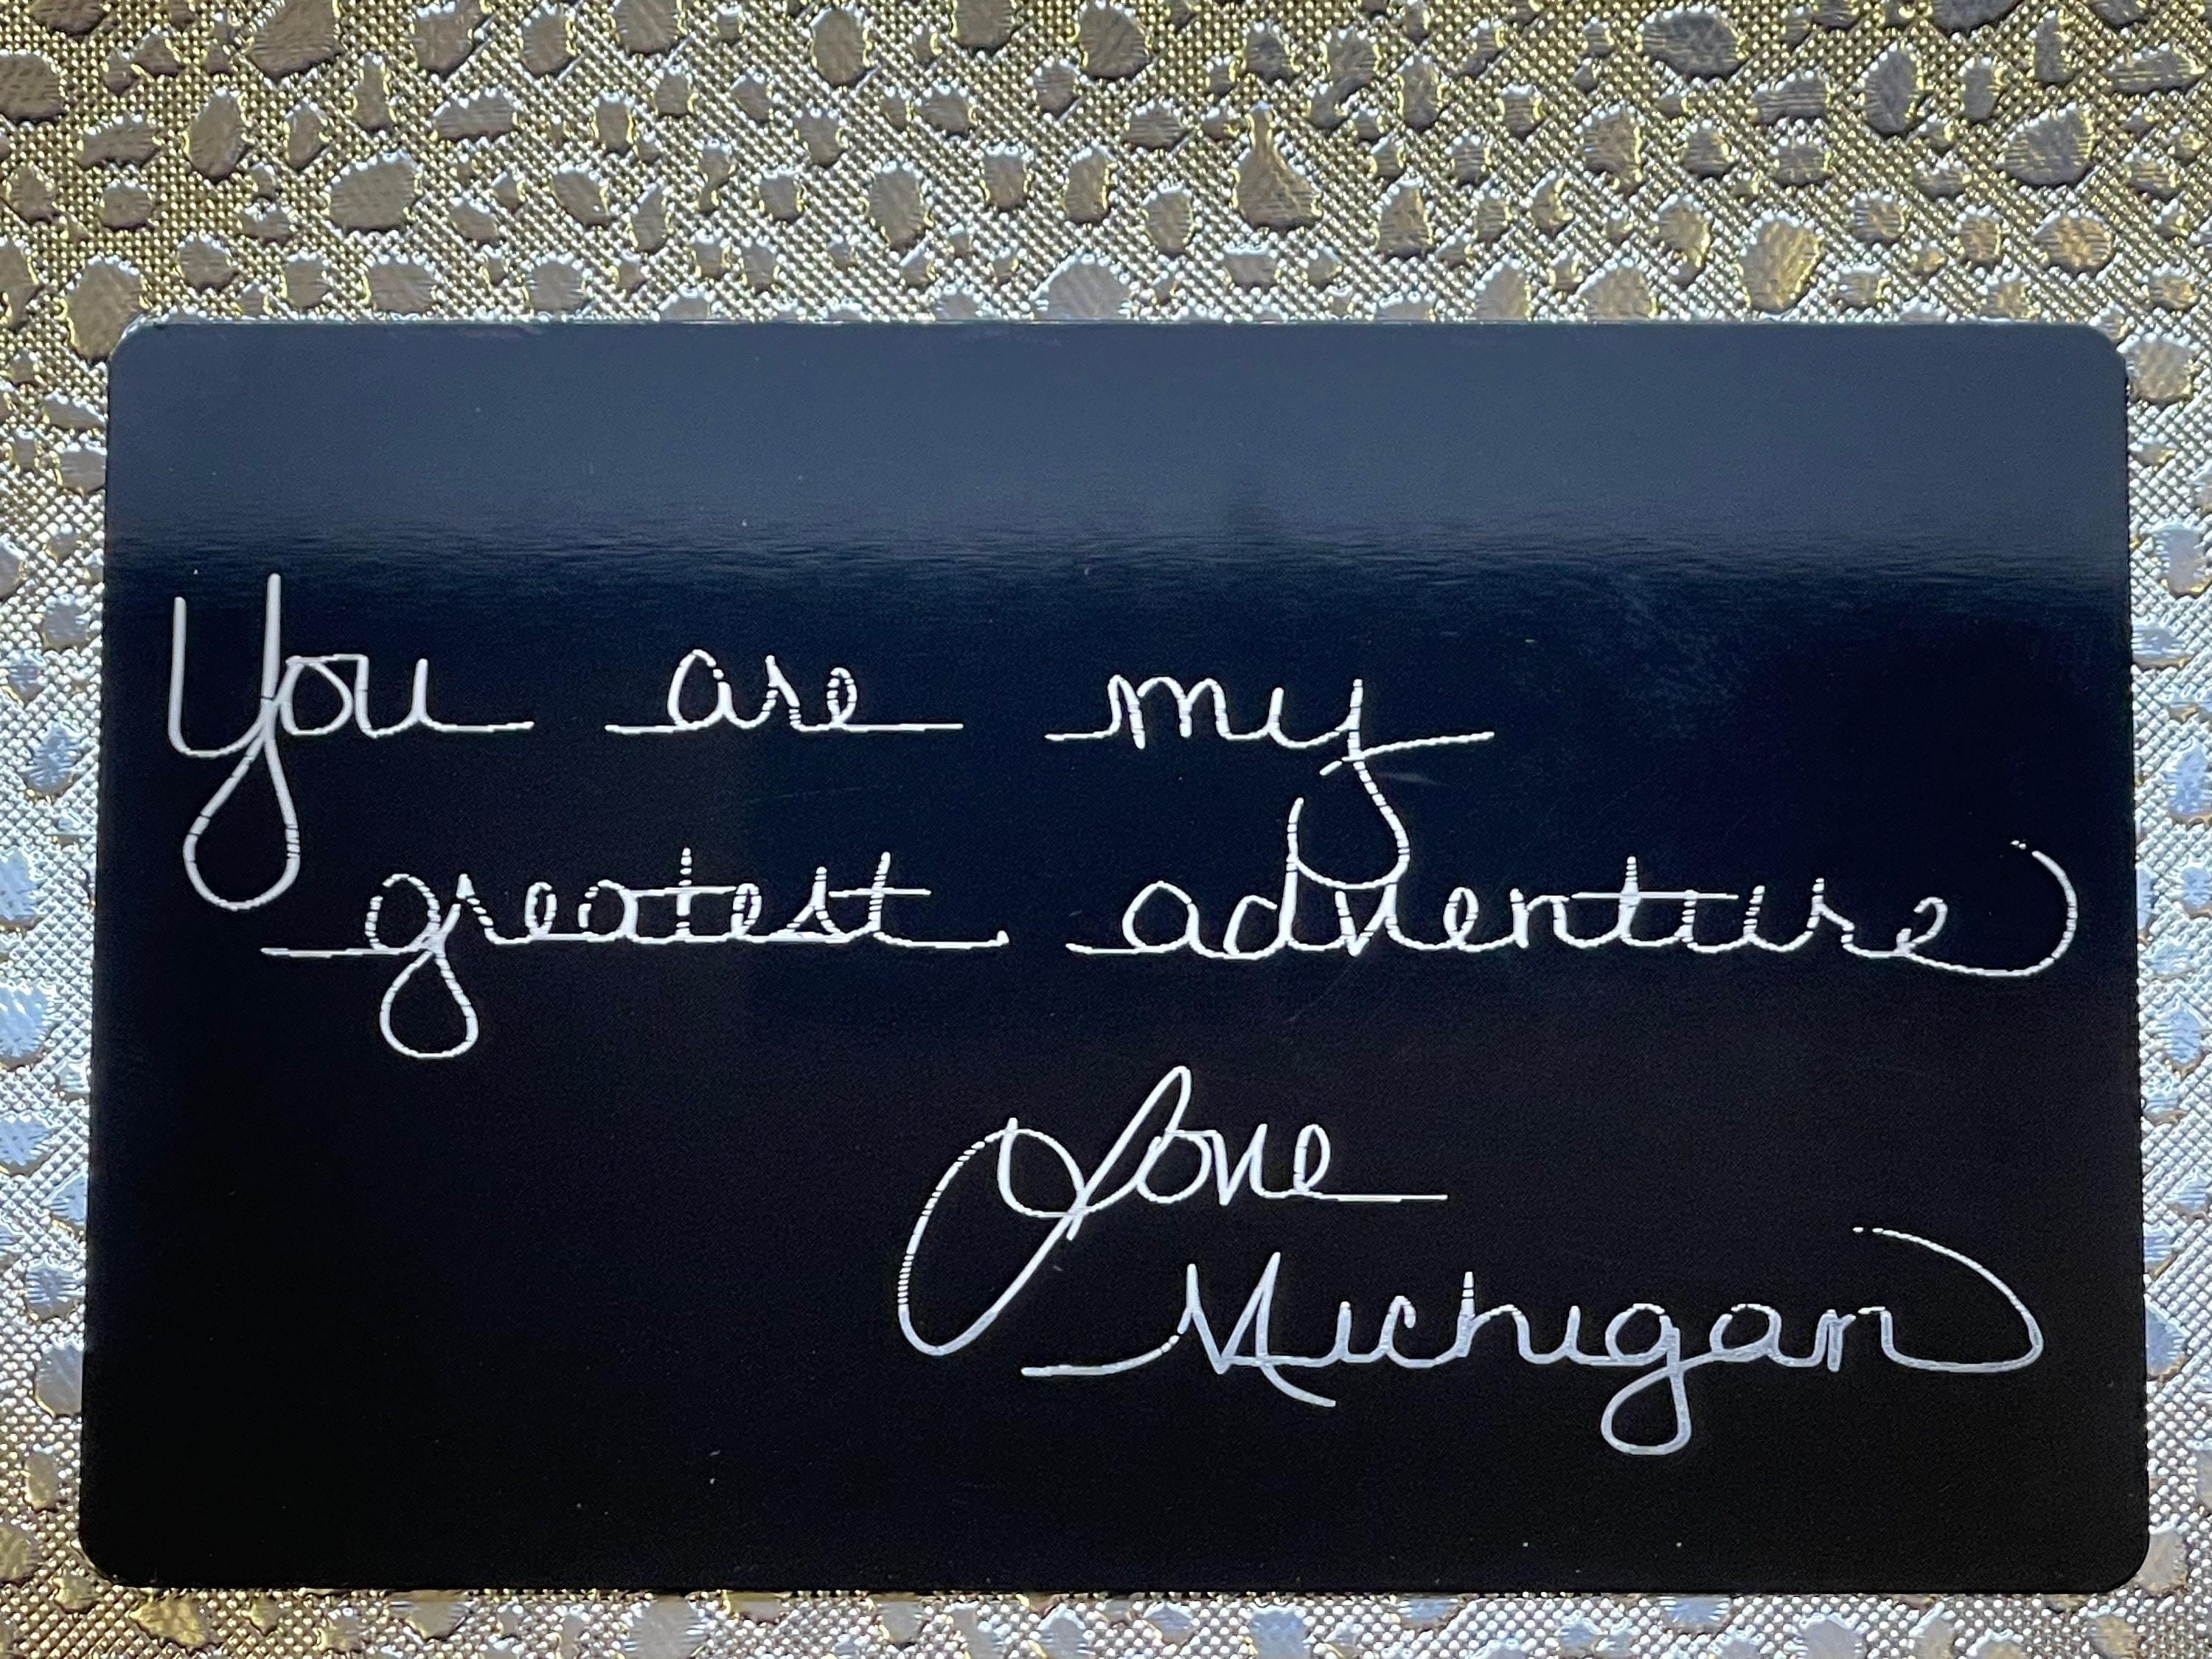 You are my
greatest adventure
Love
Michigan